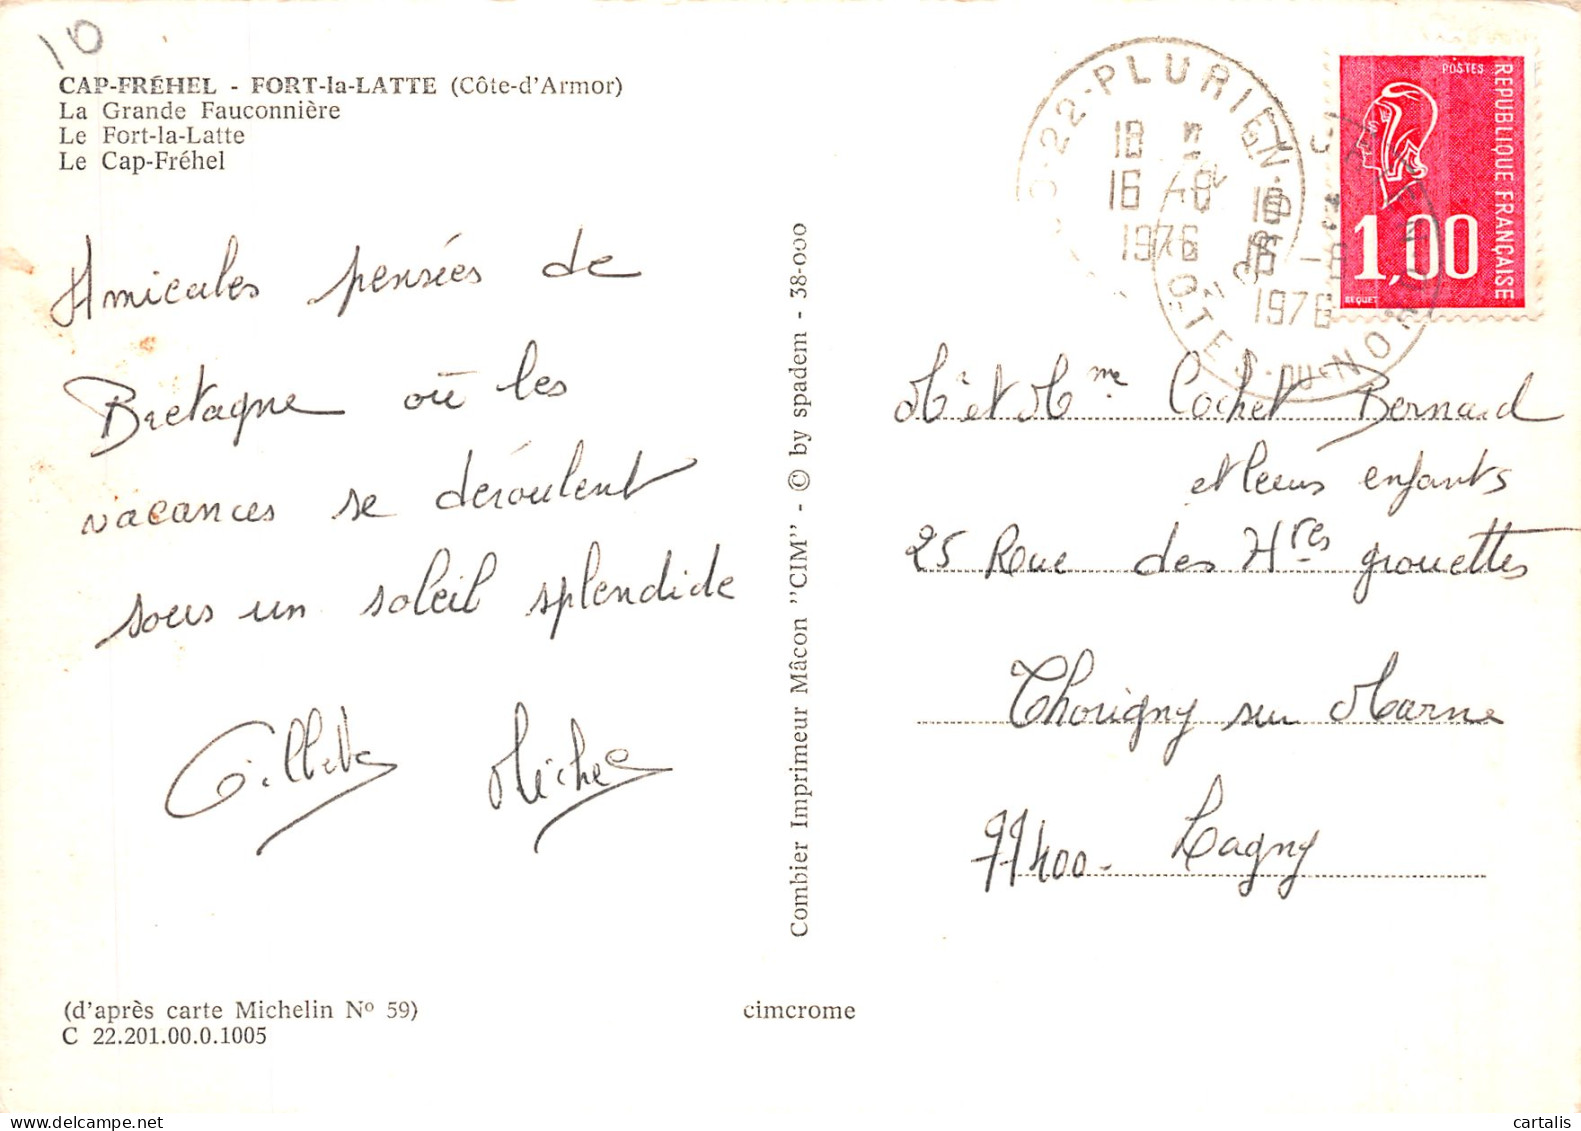 10
CAP-FRÉHEL - FORT-la-LATTE (Côte-d'Armor)
La Grande Fauconnière
Le Fort-la-Latte
Le Cap-Fréhel
Amicales pensées de
Bretagne où les
vacances se déroulent
sous un soleil splendide
Gillette Michel
(d'après carte Michelin Nº 59)
C 22.201.00.0.1005
cimcrome
Combier Imprimeur Mâcon "CIM" - © by spadem - 38-000
22-PLURIEN
18
16 -8
1976
CÔTES-DU-NORD
18
16 -8
1976
POSTES
REPUBLIQUE FRANÇAISE
1,00
BEQUET
Mr et Mme Cochet Bernard
et leurs enfants
25 Rue des Htres grouettes
Thorigny sur Marne
77400 - Lagny
cartalis